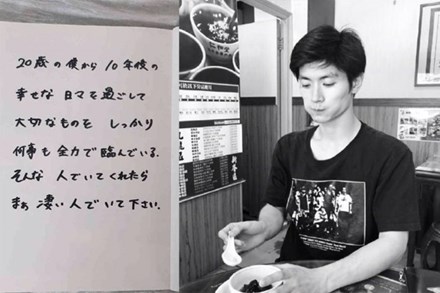 20歳の僕から10年後の
幸せな日々を過ごして
大切なものをしっかり
何事も全力で臨んでいる。
そんな人でいてくれたら
まぁ凄い人でいて下さい。